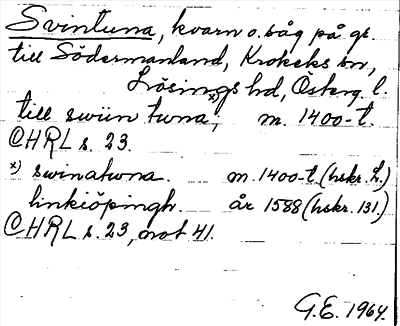 Svintuna, kvarn o. såg på gr.
till Södermanland, Krokeks sn,
Lösings hd, Österg. l.
till swiin tuna,x) m. 1400-t.
OHRL s. 23.
x) swinatuna. m. 1400-t (hskr. L.)
linkiöpingh. år 1588 (hskr. 131.)
OHRL s. 23, not 41.
G.E. 1964.